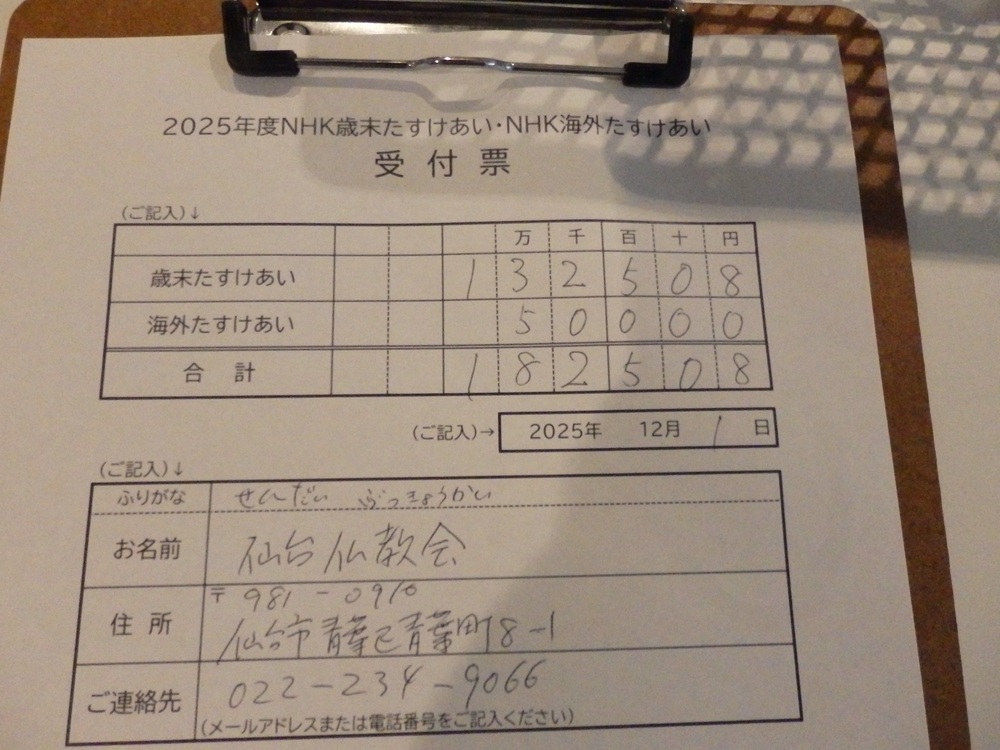 2025年度NHK歳末たすけあい・NHK海外たすけあい
受付票
(ご記入)↓
万 千 百 十 円
歳末たすけあい 1 3 2 5 0 8
海外たすけあい 5 0 0 0 0
合 計 1 8 2 5 0 8
(ご記入)→ 2025年 12月 1 日
(ご記入)↓
ふりがな せんだい ぶっきょうかい
お名前 仙台仏教会
住 所 〒981-0910
仙台市青葉区青葉町18-1
ご連絡先 022-234-9066
(メールアドレスまたは電話番号をご記入ください)